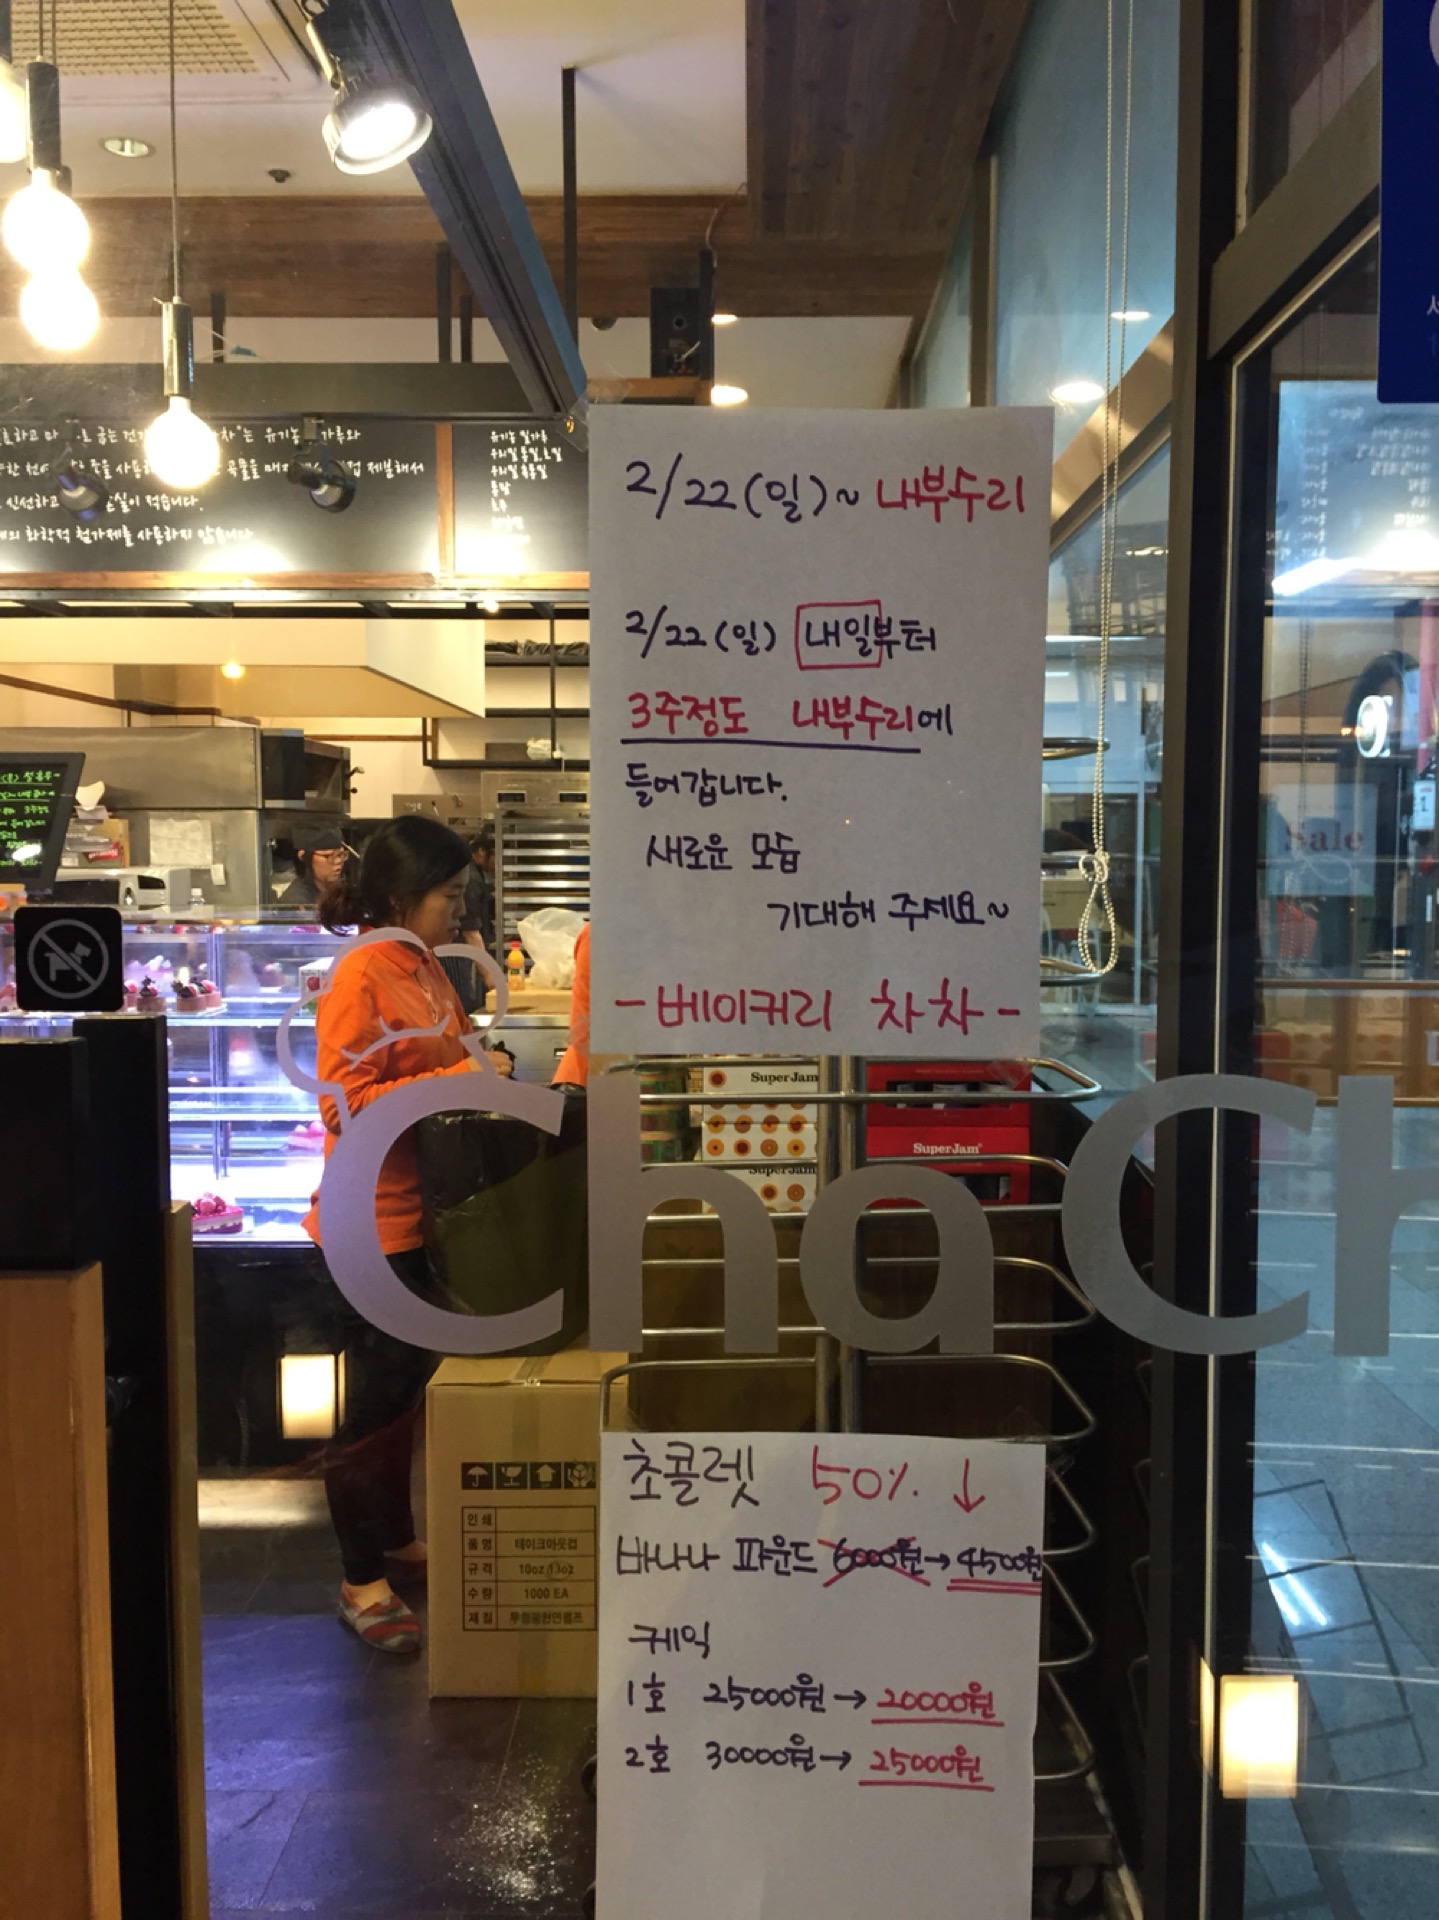 2/22(일)~ 내부수리
2/22(일) 내일부터
3주정도 내부수리에
들어갑니다.
새로운 모습
기대해 주세요~
-베이커리 차차-
Cha Ch
SuperJam
SuperJam
SuperJam
Sale
초콜렛 50% ↓
바나나 파운드 6000원→4500원
케익
1호 25000원→20000원
2호 30000원→25000원
인쇄
품명 테이크아웃컵
규격 10oz 13oz
수량 1000 EA
재질 무형광천연펄프
유기농 밀가루
신선하고
화학적 첨가제를 사용하지 않습니다